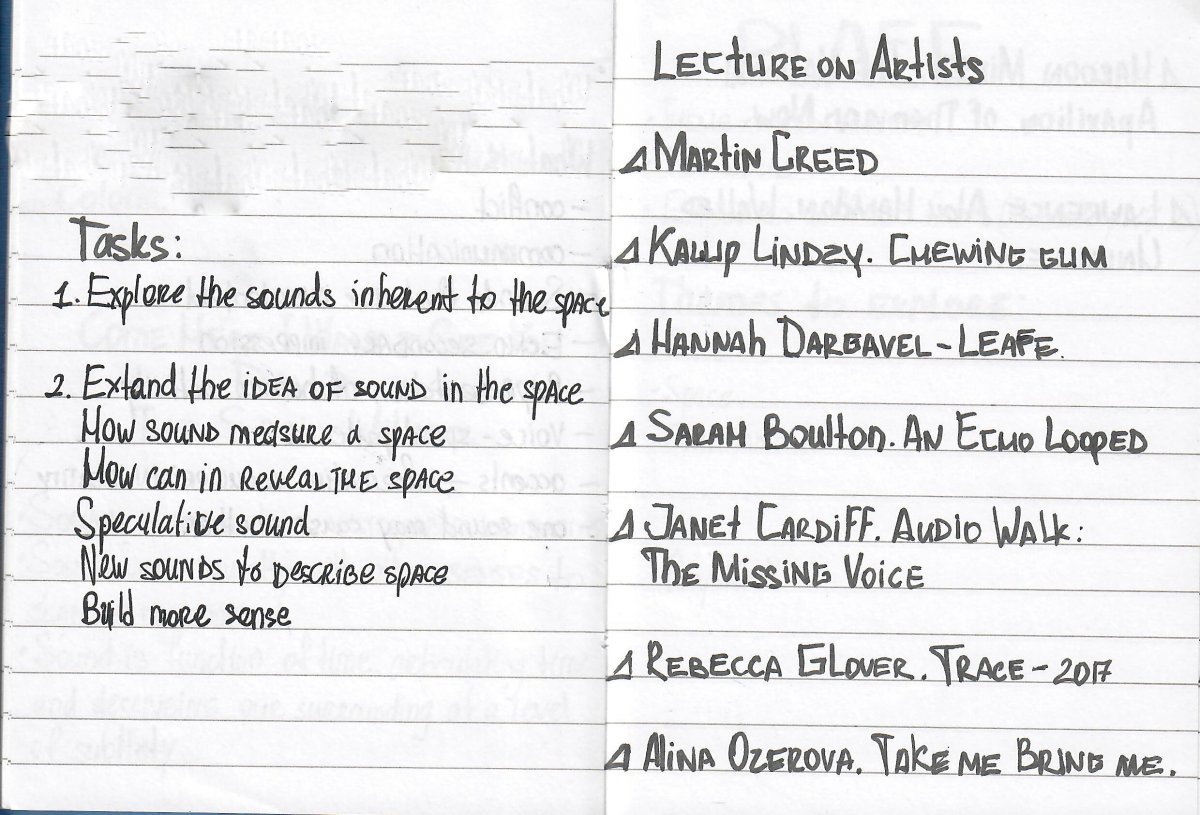 Tasks:
1. Explore the sounds inherent to the space
2. Extand the idea of sound in the space
How sound measure a space
How can in reveal the space
Speculative sound
New sounds to describe space
Build more sense
Lecture on Artists
Martin Creed
Kalup Lindzy. Chewing gum
Hannah Dargavel-Leafe.
Sarah Boulton. An Echo Looped
Janet Cardiff. Audio Walk:
The Missing Voice
Rebecca Glover. Trace - 2017
Alina Ozerova. Take me Bring me.